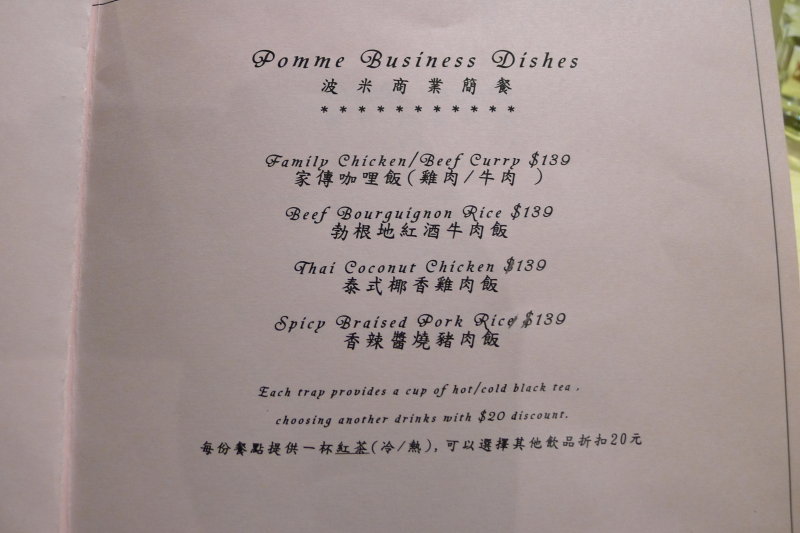 Pomme Business Dishes
波米商業簡餐
* * * * * * * * * * *
Family Chicken/Beef Curry $139
家傳咖哩飯(雞肉/牛肉 )
Beef Bourguignon Rice $139
勃根地紅酒牛肉飯
Thai Coconut Chicken $139
泰式椰香雞肉飯
Spicy Braised Pork Rice $139
香辣醬燒豬肉飯
Each trap provides a cup of hot/cold black tea ,
choosing another drinks with $20 discount.
每份餐點提供一杯紅茶(冷/熱), 可以選擇其他飲品折扣20元